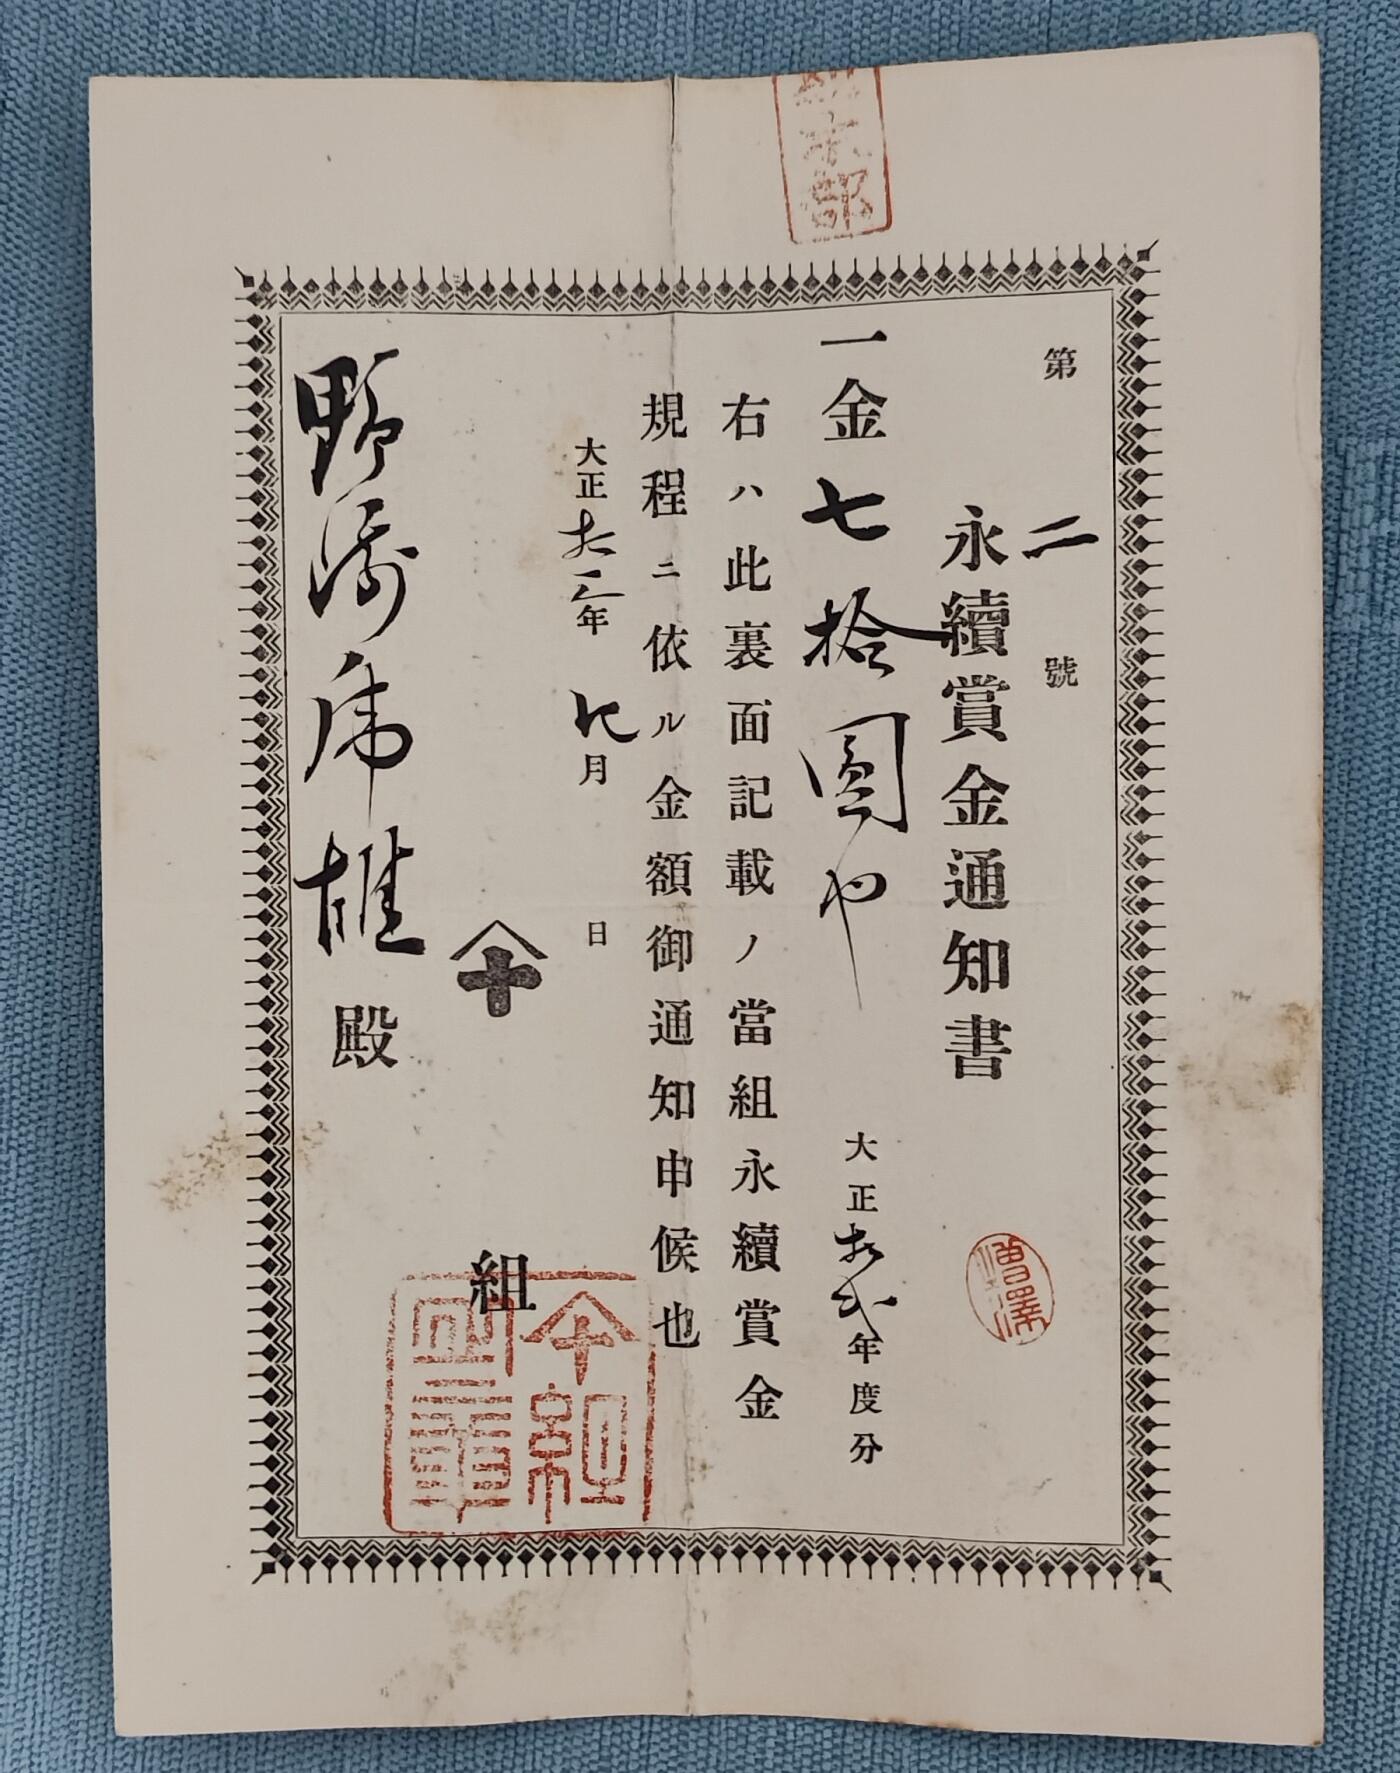 部
第二號
永續賞金通知書
一金七拾圓也
大正拾弐年度分
右ハ此裏面記載ノ當組永續賞金
規程ニ依ル金額御通知申候也
大正拾三年 月 日
組
野 虎雄殿